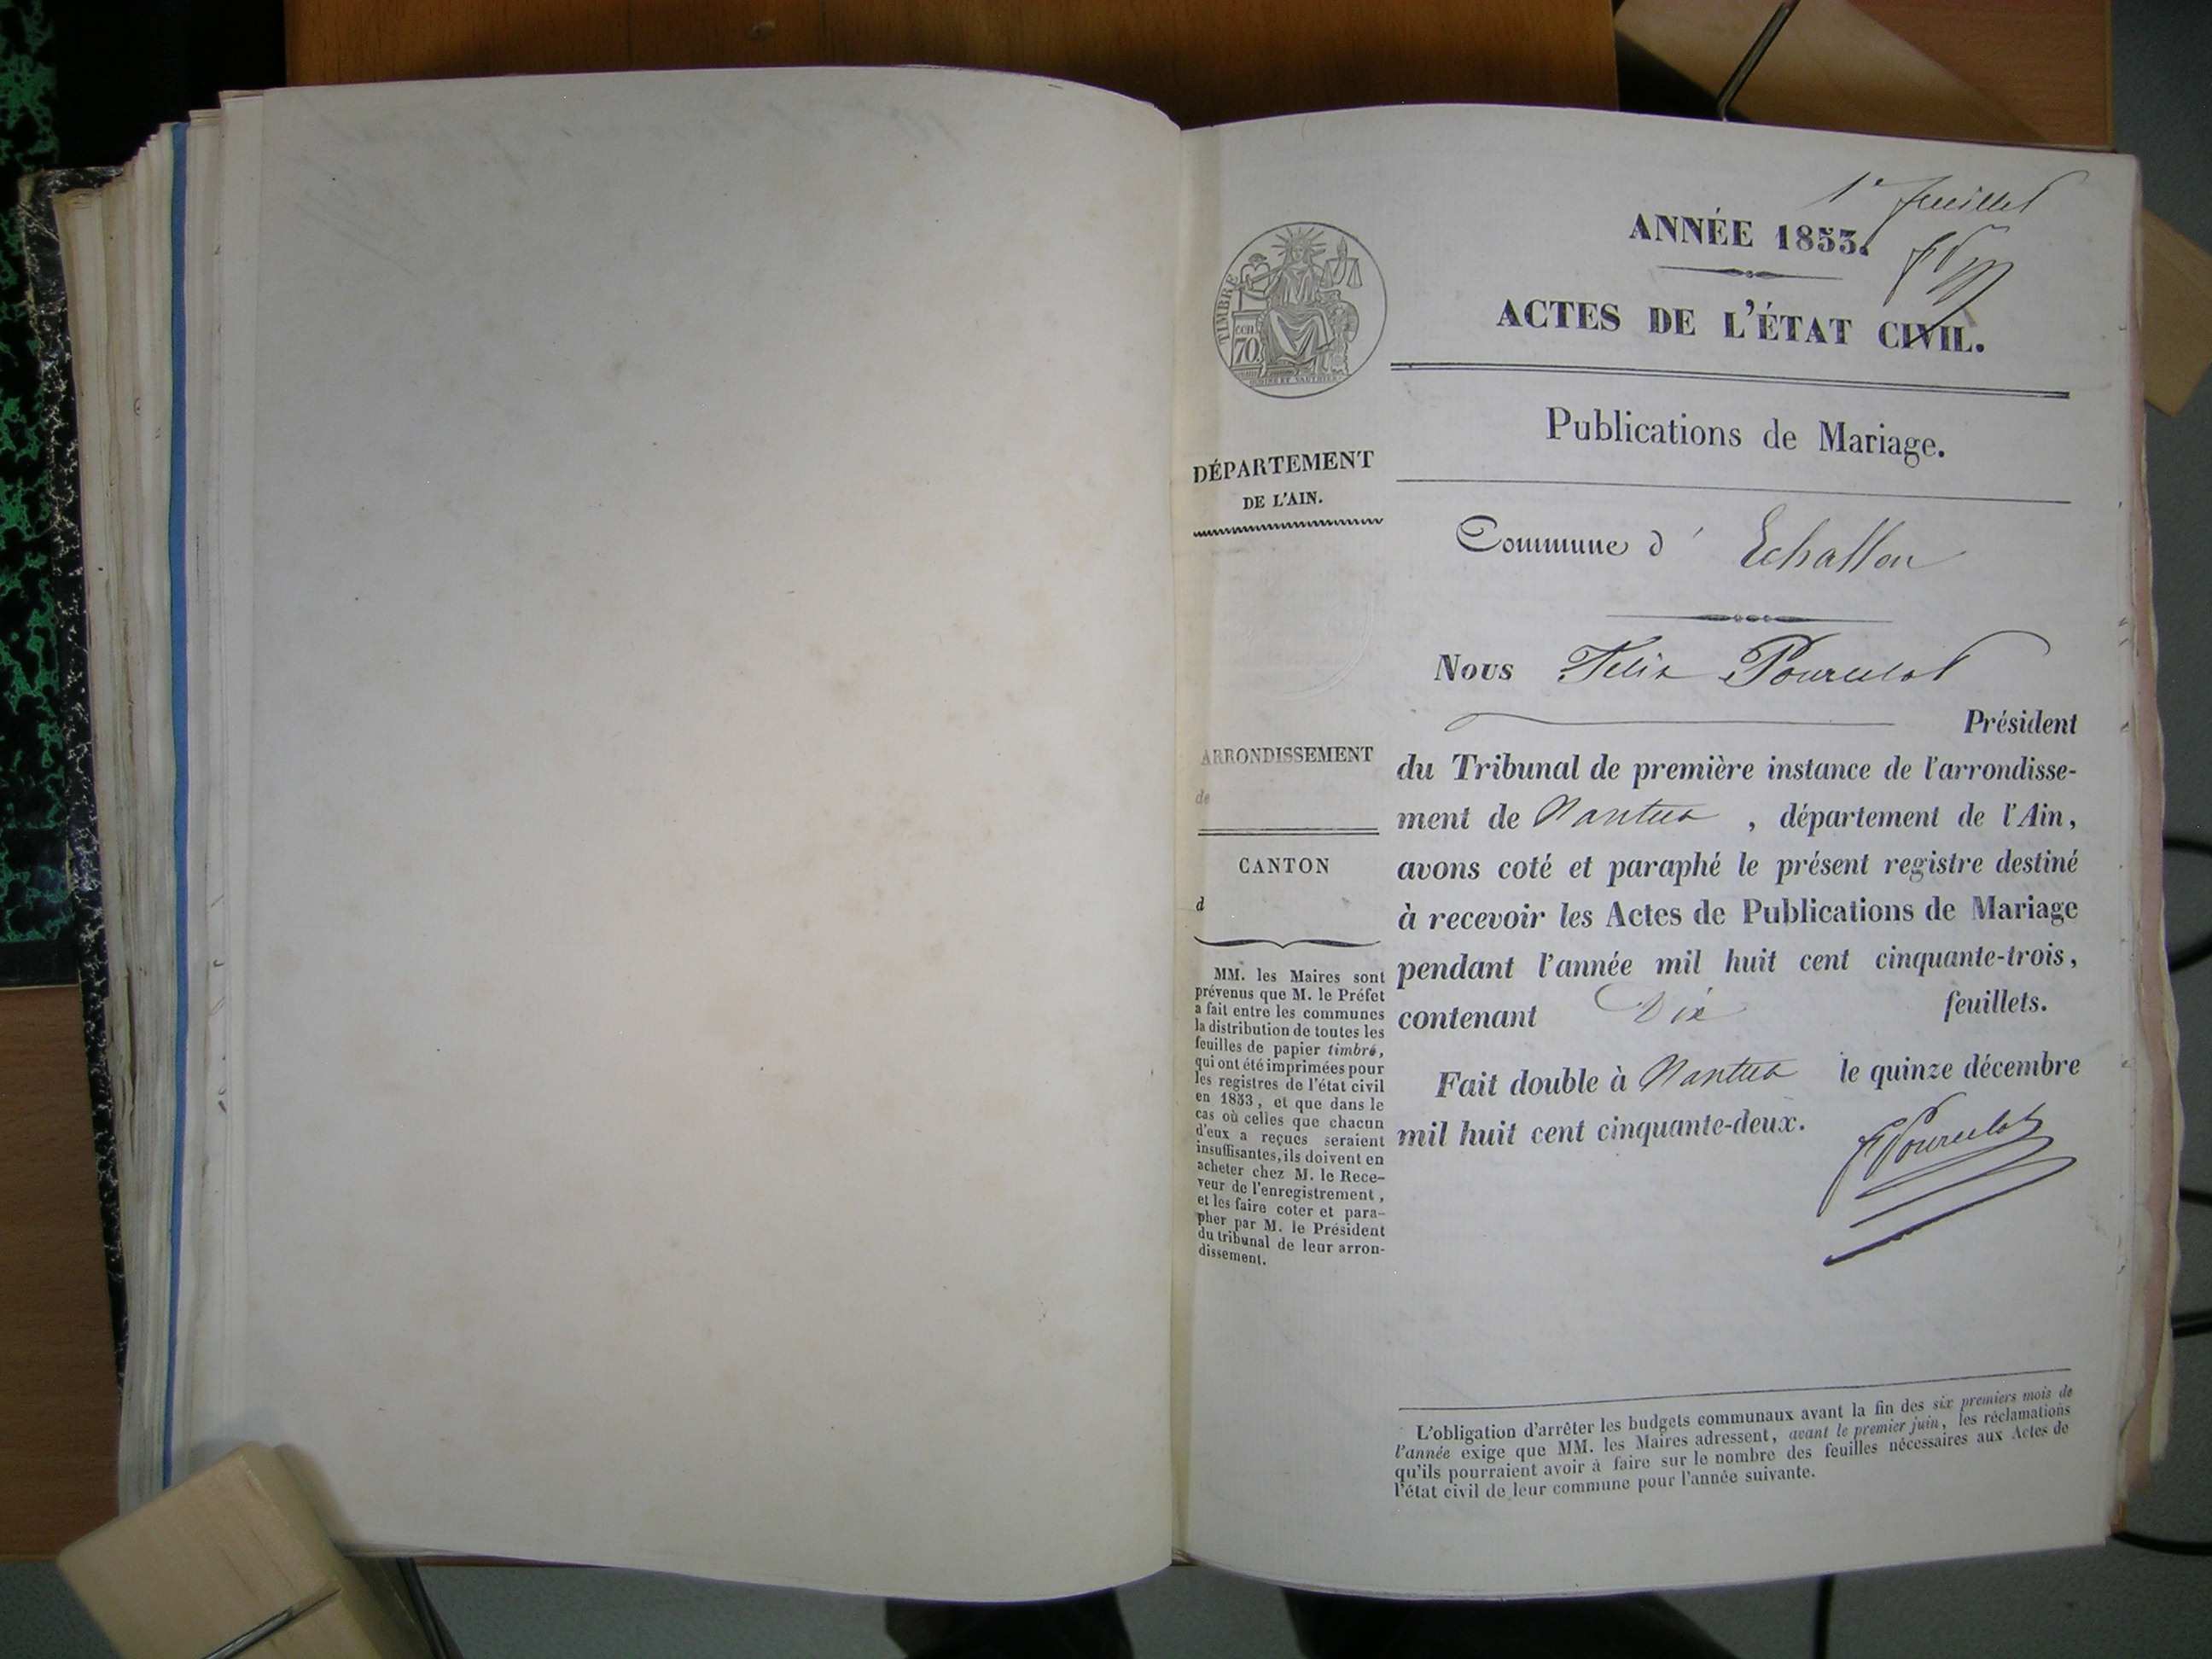 1er feuillet
ANNÉE 1853.
ACTES DE L'ÉTAT CIVIL.
TIMBRE
cen
70.
Publications de Mariage.
DÉPARTEMENT
DE L'AIN.
Commune d' Echallon
Nous Félix Pourcelot
Président
du Tribunal de première instance de l'arrondisse-
ment de Nantua , département de l'Ain,
avons coté et paraphé le présent registre destiné
à recevoir les Actes de Publications de Mariage
pendant l'année mil huit cent cinquante-trois,
contenant Dix feuillets.
Fait double à Nantua le quinze décembre
mil huit cent cinquante-deux.
F Pourcelot
ARRONDISSEMENT
de
CANTON
d
MM. les Maires sont
prévenus que M. le Préfet
a fait entre les communes
la distribution de toutes les
feuilles de papier timbré,
qui ont été imprimées pour
les registres de l'état civil
en 1853, et que dans le
cas où celles que chacun
d'eux a reçues seraient
insuffisantes, ils doivent en
acheter chez M. le Rece-
veur de l'enregistrement,
et les faire coter et para-
pher par M. le Président
du tribunal de leur arron-
dissement.
L'obligation d'arrêter les budgets communaux avant la fin des six premiers mois de
l'année exige que MM. les Maires adressent, avant le premier juin, les réclamations
qu'ils pourraient avoir à faire sur le nombre des feuilles nécessaires aux Actes de
l'état civil de leur commune pour l'année suivante.